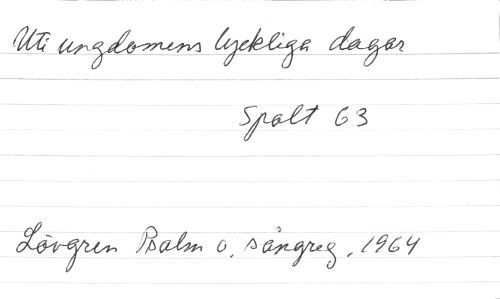 Uti ungdomens lyckliga dagar
Spalt 63
Lövgren Psalm o. sångreg. 1964